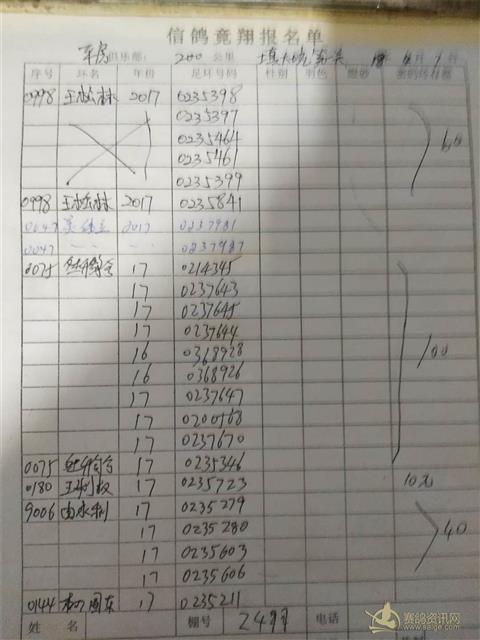 信鸽竞翔报名单
车房 俱乐部： 200 公里
序号 环名 年份 足环号码 性别 羽色
0998 王松林 2017 0235398
0235397
0235464
0235461
0235399
60
0998 王松林 2017 0235841
0047 2017 0237981
0047 0237987
0075 17 0214345
17 0237643
17 0237645
17 0237644
16 0368928
16 0368926
100
17 0237647
17 0200568
17 0237670
0075 17 0235346
0180 王 17 0235723 10元
9006 由水利 17 0235279
17 0235280 40
17 0235603
17 0235606
0144 17 0235211
姓名 棚号 电话
赛鸽资讯网
www.saige.com